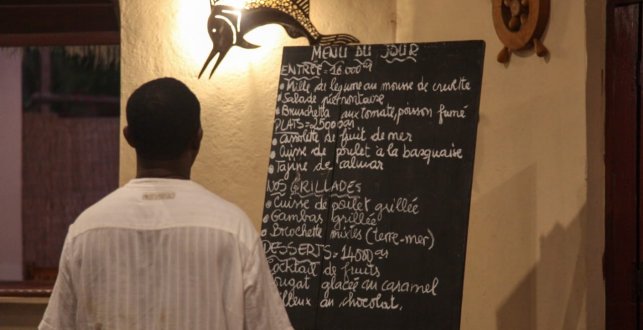 MENU DU JOUR
ENTRÉE = 16 000 ar
• Mille de legume au mousse de crevette
• Salade piemontaise
• Bruschetta aux tomate, poisson fumé
PLATS = 25000 ar
• Cassolette de fruit de mer
• Cuisse de poulet à la basquaise
• Tajine de calmar
NOS GRILLADES
• Cuisse de poulet grillée
• Gambas grillée
• Brochette mixtes (terre-mer)
DESSERTS = 14000 ar
Cocktail de fruits
Nougat glacée au caramel
au chocolat.